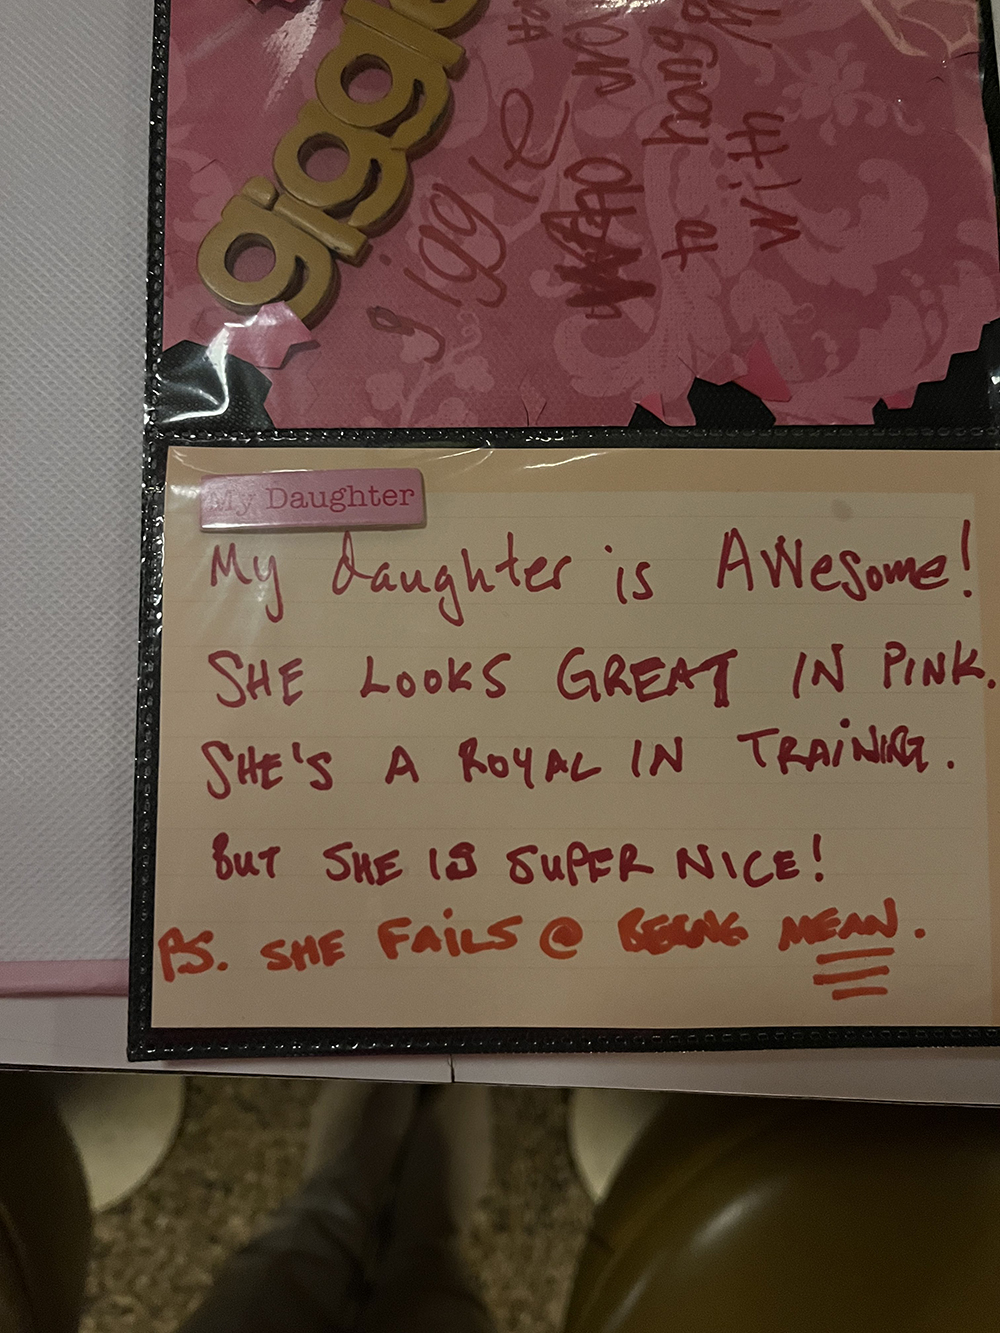 giggle
giggl
to hang
with
My Daughter
My daughter is AWesome!
SHE LOOKS GREAT IN PINK.
SHE'S A ROYAL IN TRAiNiNG.
BUT SHE IS SUPER NICE!
P.S. SHE FAiLS @ BEING MEAN.